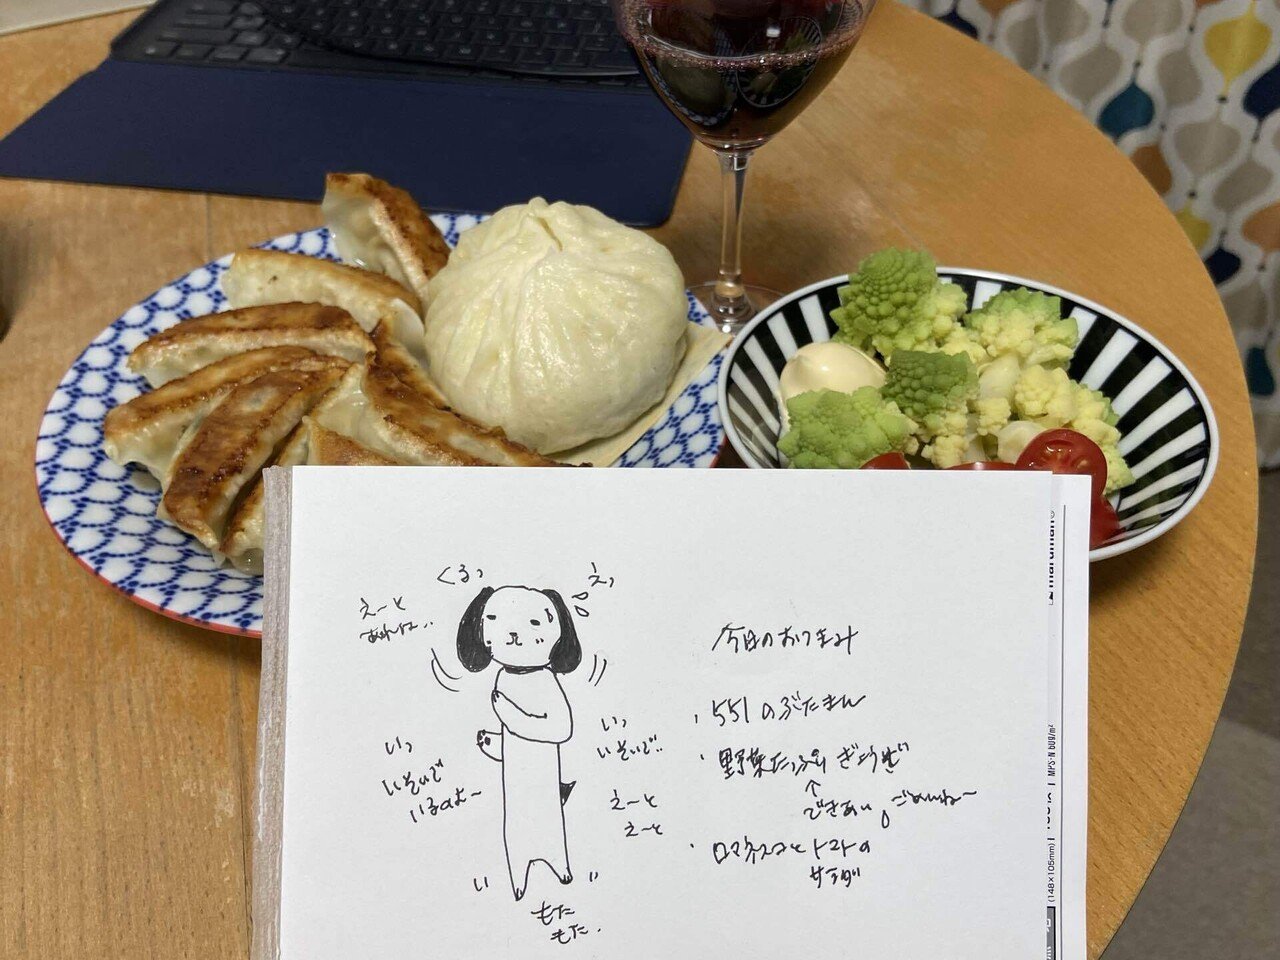 くるっ
えっ
えーと
あれね‥
いっ
いそいで
いるのよ〜
いっ
いそいで‥
えーと
えーと
い
い
もた
もた.
今日のおつまみ
・551のぶたまん
・野菜たっぷりぎょうざ
↑
できあい。ごめんね〜
・ロマネスコとトマトの
サラダ
maruman®
MPS-N 60g/m²
(148×105mm)